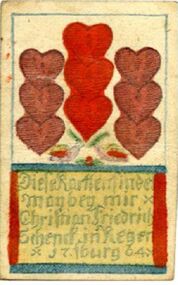 Diese Karten findet
man bey mir ×
Christian Friedrich
Schenck, in Regen
× 17. sburg 64 ×